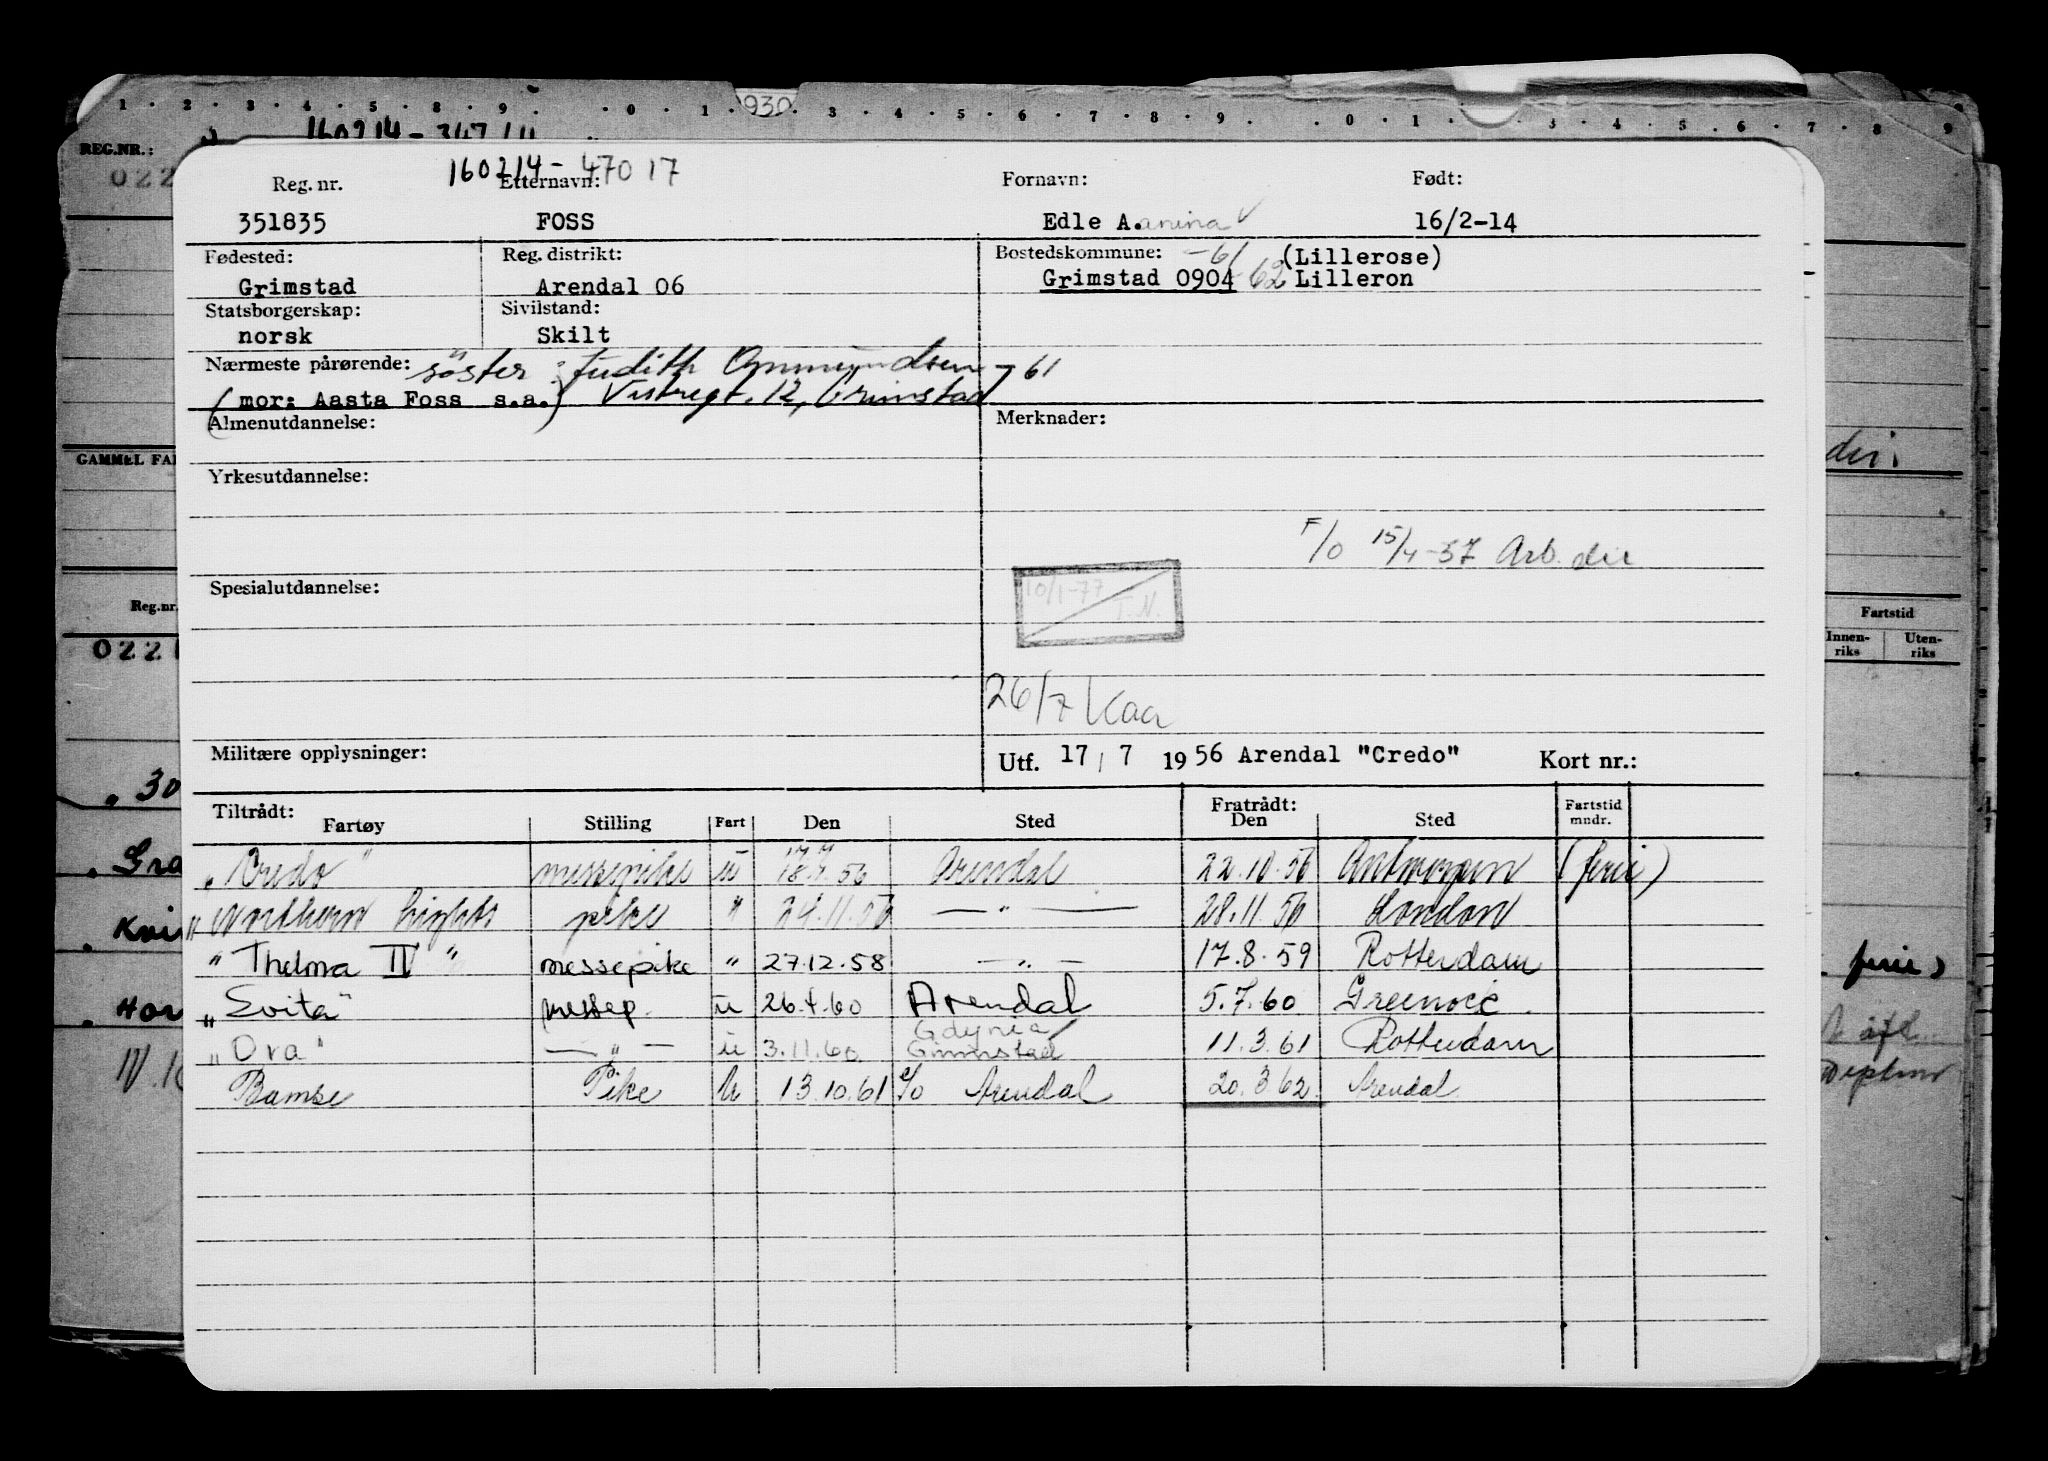 1 . 2 . 3 . 4 . 5 . 8 . 9 . . 0 . 1 . 930 . 3 . 4 . 5 . 6 . 7 . 8 . 9 . . 0 . 1 . 3 . 4 . 5 . 6 . 7 . 8 . 9
REG.NR.:
022
160214-47017
Reg. nr. Etternavn: Fornavn: Født:
351835 FOSS Edle A.anina 16/2-14
Fødested: Reg. distrikt: Bostedskommune: -61 (Lillerose)
Grimstad Arendal 06 Grimstad 0904 -62 Lilleron
Statsborgerskap: Sivilstand:
norsk Skilt
Nærmeste pårørende: søster: Judith Ommundsen -61
(mor: Aasta Foss s.a.) Vestregt. 12, Grimstad
Almenutdannelse: Merknader:
GAMMEL FA
dir.
Yrkesutdannelse:
F/O 15/4-57 Arb. dir
Spesialutdannelse:
10/1-77
T.N.
Reg.nr.
022
Fartstid
Innen-riks Uten-riks
26/7 Kaa
Militære opplysninger: Utf. 17/7 1956 Arendal "Credo" Kort nr.:
Tiltrådt: Fratrådt: Fartstid mndr.
Fartøy Stilling Fart Den Sted Den Sted
"Credo" messepike u 17.7 18.7.56 Arendal 22.10.56 Antwerpen (ferie)
"Northern Lights pike " 24.11.56 — " — 28.11.56 London
"Thelma IV" messepike " 27.12.58 — " — 17.8.59 Rotterdam
"Evita" messep. u 26.4.60 Arendal 5.7.60 Greenock
Gdynia
"Ora" — " — u 3.11.60 Grimstad 11.3.61 Rotterdam
Bamse Pike u 13.10.61 c/o Arendal 20.3.62 Arendal
. 30
. Gra
. Kvi
. Hor
ferie)